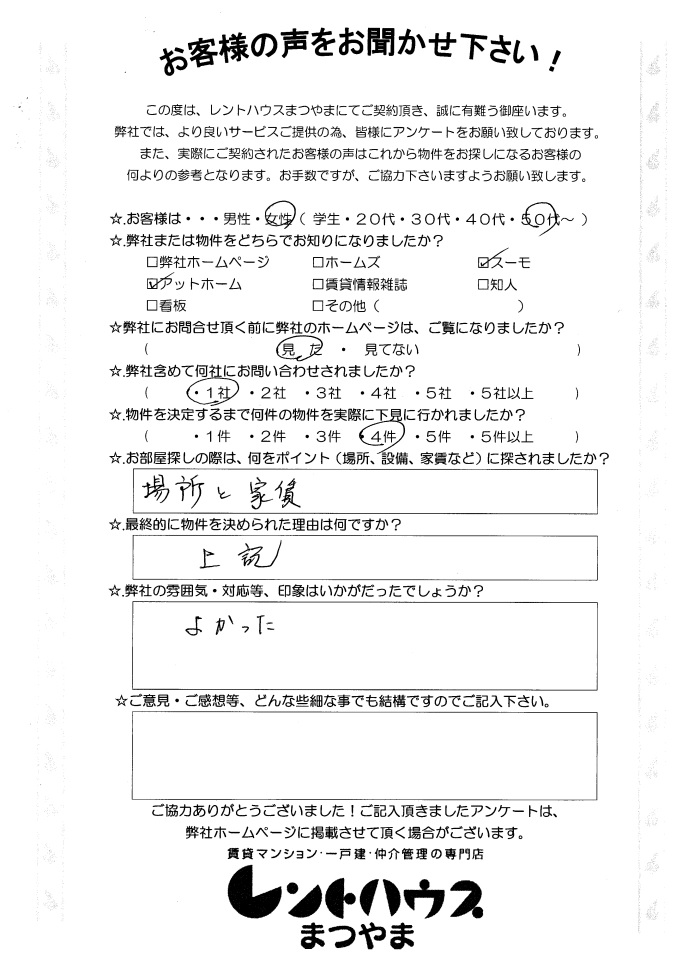 お客様の声をお聞かせ下さい！
この度は、レントハウスまつやまにてご契約頂き、誠に有難う御座います。
弊社では、より良いサービスご提供の為、皆様にアンケートをお願い致しております。
また、実際にご契約されたお客様の声はこれから物件をお探しになるお客様の
何よりの参考となります。お手数ですが、ご協力下さいますようお願い致します。
☆.お客様は・・・男性・女性（ 学生・２０代・３０代・４０代・５０代～ ）
☆.弊社または物件をどちらでお知りになりましたか？
□弊社ホームページ □ホームズ ☑スーモ
☑アットホーム □賃貸情報雑誌 □知人
□看板 □その他（ ）
☆弊社にお問合せ頂く前に弊社のホームページは、ご覧になりましたか？
（ 見 た ・ 見てない ）
☆.弊社含めて何社にお問い合わせされましたか？
（ ・１社 ・２社 ・３社 ・４社 ・５社 ・５社以上 ）
☆.物件を決定するまで何件の物件を実際に下見に行かれましたか？
（ ・１件 ・２件 ・３件 ・４件 ・５件 ・５件以上 ）
☆.お部屋探しの際は、何をポイント（場所、設備、家賃など）に探されましたか？
場所と家賃
☆.最終的に物件を決められた理由は何ですか？
上記
☆.弊社の雰囲気・対応等、印象はいかがだったでしょうか？
よかった
☆ご意見・ご感想等、どんな些細な事でも結構ですのでご記入下さい。
ご協力ありがとうございました！ご記入頂きましたアンケートは、
弊社ホームページに掲載させて頂く場合がございます。
賃貸マンション・一戸建・仲介管理の専門店
レントハウス
まつやま